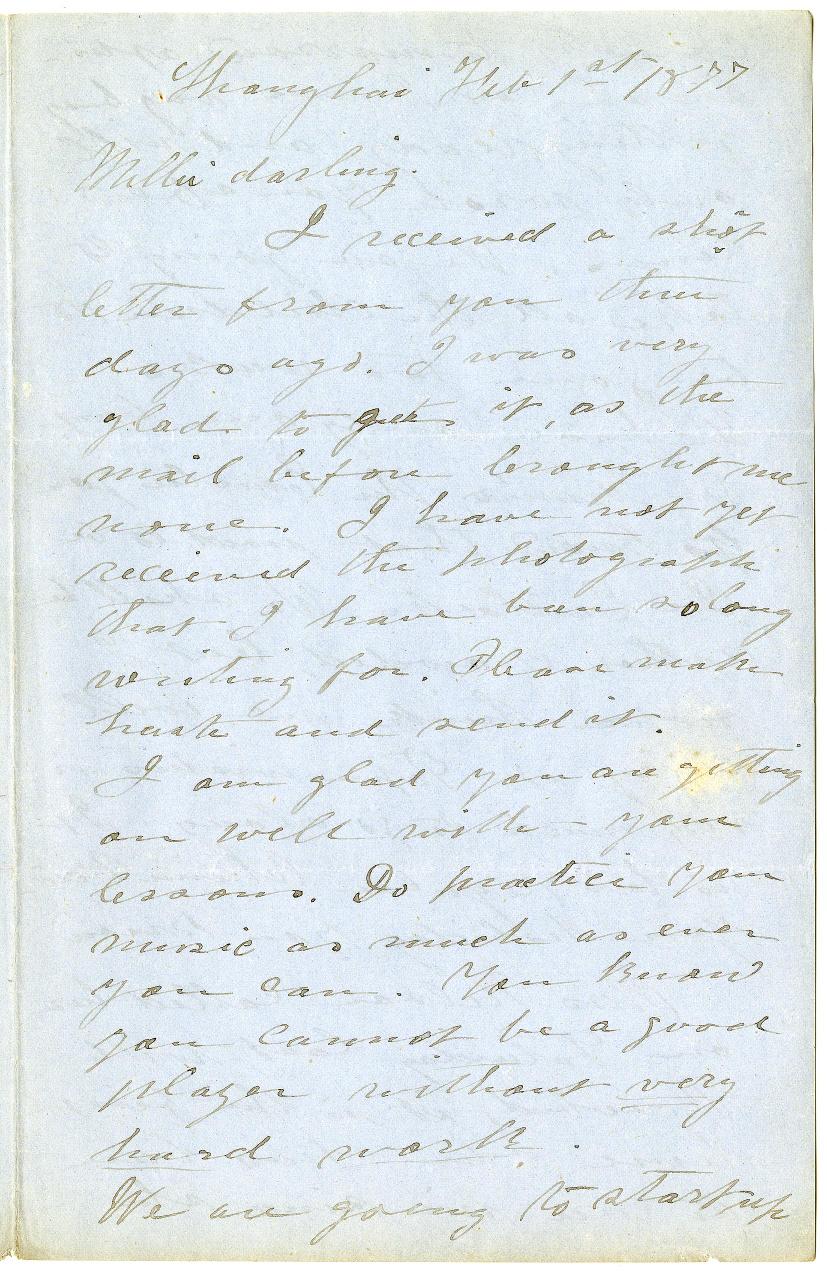 Shanghai Feb 1st 1877
Millie darling.
I received a short
letter from you three
days ago. I was very
glad to get it, as the
mail before brought me
none. I have not yet
received the photograph
that I have been so long
writing for. Please make
haste and send it.
I am glad you are getting
on well with your
lessons. Do practice your
music as much as ever
you can. You know
you cannot be a good
player without very
hard work.
We are going to start up